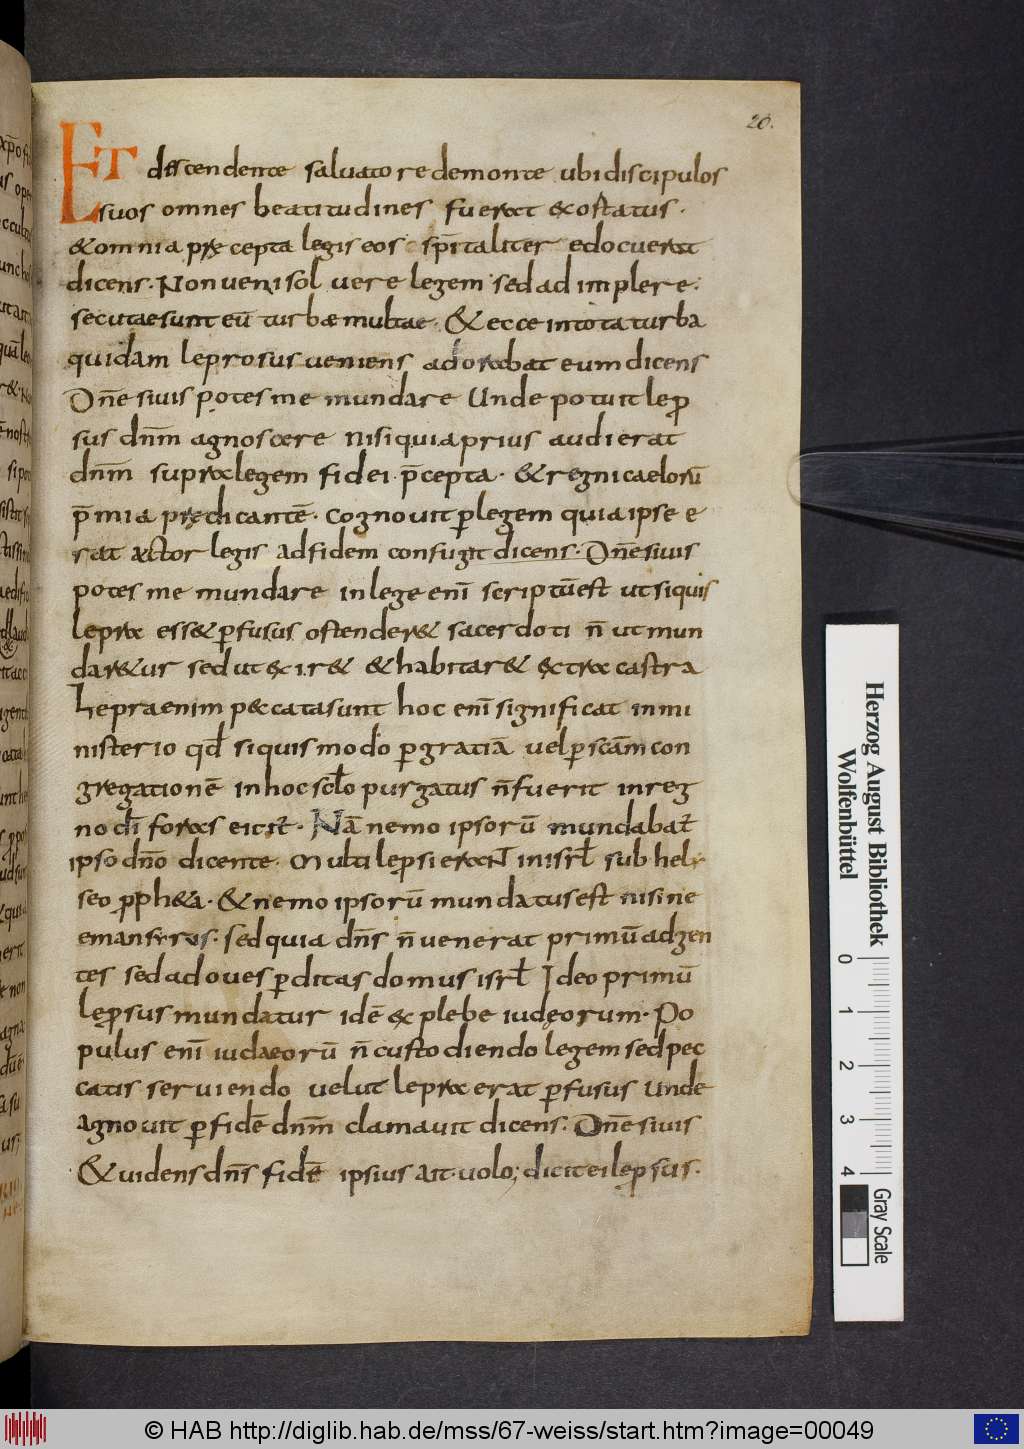 20.
ET descendente salvatore demonte ubi discipulos
suos omnes beatitudines fuerat & ostatus.
& omnia p̄cepta legis eos sp̄italiter edocuerat
dicens. Non veni solvere legem sed ad implere.
secutae sunt eū turbae multae. & ecce in tota turba
quidam leprosus veniens adorabat eum dicens
Dn̄e si vis potes me mundare Unde potuit lep
sus dn̄m agnoscere nisi quia prius audierat
dn̄m supra legem fidei p̄cepta. & regni caelorū
p̄mia predicantē. cognovit p legem quia ipse e
rat actor legis ad fidem confugit dicens. Dn̄e si vis
potes me mundare in lege enī scriptū est ut si quis
lepra ess& pfusus ostender& sacerdoti n̄ ut mun
dar&ur sed ut exir& & habitar& extra castra
Leprae enim peccata sunt hoc enī significat in mi
nisterio qđ si quis modo p gratiā vel p scām con
gregationē in hoc sclo purgatus n̄ fuerit in reg
no dī foras eicit̄. Nā nemo ipsorū mundabat̄
ipso dn̄o dicente. Multi lepsi erant in isrl sub hel
seo pph&a. & nemo ipsorū mundatus est nisi ne
eman syrus. sed quia dn̄s n̄ venerat primū ad gen
tes sed ad oves pditas domus isrl Ideo primū
lepsus mundatur idē ex plebe iudęorum. Po
pulus enī iudaeorū n̄ custodiendo legem sed pec
catis serviendo velut lepra erat pfusus Unde
agnovit p fidē dn̄m clamavit dicens. Dn̄e si vis
& videns dn̄s fidē ipsius ait. volo; dicit ei lepsus.
Herzog August Bibliothek
Wolfenbüttel
0 1 2 3 4
Gray Scale
© HAB http://diglib.hab.de/mss/67-weiss/start.htm?image=00049